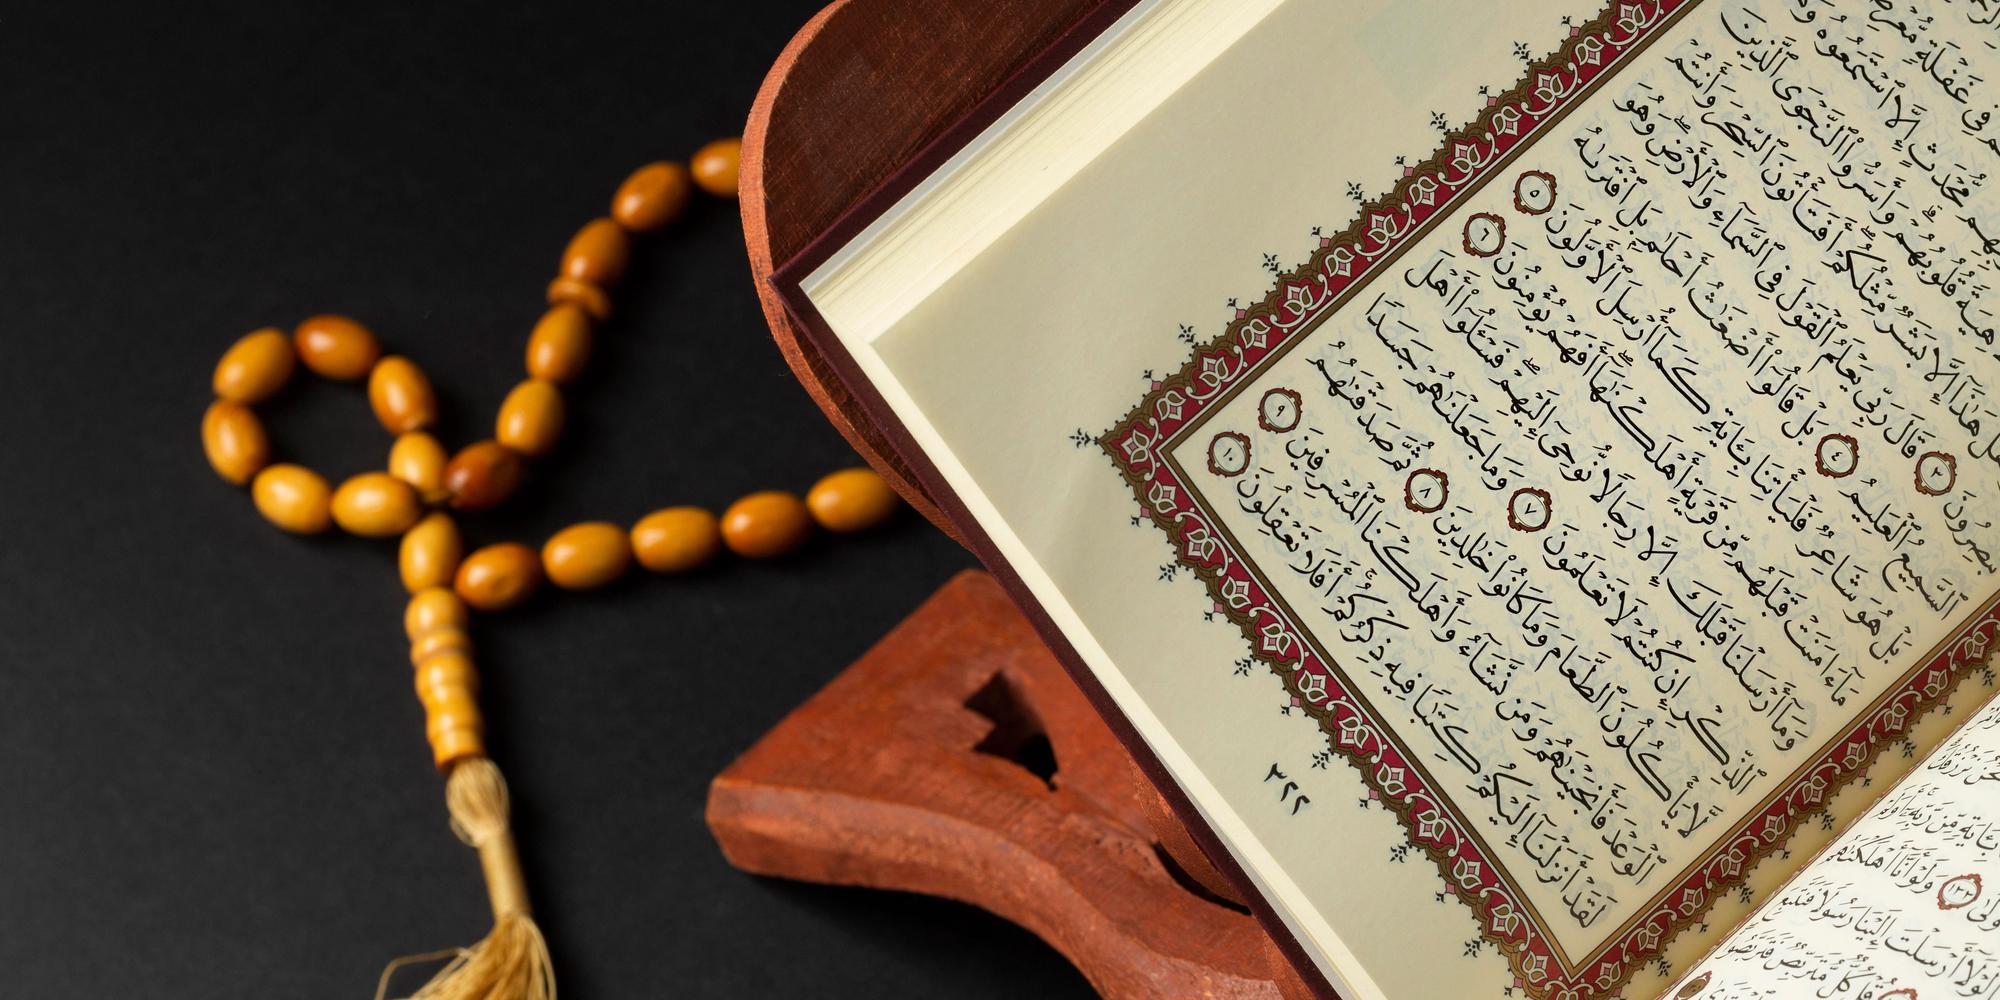 فِى غَفْلَةٍ
مُّحْدَثٍ إِلَّا ٱسْتَمَعُوهُ
قُلُوبُهُمْ وَأَسَرُّوا۟ ٱلنَّجْوَى ٱلَّذِينَ
هَلْ هَٰذَآ إِلَّا بَشَرٌ مِّثْلُكُمْ أَفَتَأْتُونَ ٱلسِّحْرَ وَأَنتُمْ
تُبْصِرُونَ ٣ قَالَ رَبِّى يَعْلَمُ ٱلْقَوْلَ فِى ٱلسَّمَآءِ وَٱلْأَرْضِ وَهُوَ
ٱلسَّمِيعُ ٱلْعَلِيمُ ٤ بَلْ قَالُوٓا۟ أَضْغَٰثُ أَحْلَٰمٍۭ بَلِ ٱفْتَرَىٰهُ
بَلْ هُوَ شَاعِرٌ فَلْيَأْتِنَا بِـَٔايَةٍ كَمَآ أُرْسِلَ ٱلْأَوَّلُونَ ٥
مَآ ءَامَنَتْ قَبْلَهُم مِّن قَرْيَةٍ أَهْلَكْنَٰهَآ أَفَهُمْ يُؤْمِنُونَ ٦
وَمَآ أَرْسَلْنَا قَبْلَكَ إِلَّا رِجَالًا نُّوحِىٓ إِلَيْهِمْ فَسْـَٔلُوٓا۟ أَهْلَ
ٱلذِّكْرِ إِن كُنتُمْ لَا تَعْلَمُونَ ٧ وَمَا جَعَلْنَٰهُمْ جَسَدًا
لَّا يَأْكُلُونَ ٱلطَّعَامَ وَمَا كَانُوا۟ خَٰلِدِينَ ٨ ثُمَّ صَدَقْنَٰهُمُ
ٱلْوَعْدَ فَأَنجَيْنَٰهُمْ وَمَن نَّشَآءُ وَأَهْلَكْنَا ٱلْمُسْرِفِينَ ٩
لَقَدْ أَنزَلْنَآ إِلَيْكُمْ كِتَٰبًا فِيهِ ذِكْرُكُمْ أَفَلَا تَعْقِلُونَ ١٠
٣٢٢
نَّحْنُ نَرْزُقُكَ
بِـَٔايَةٍ مِّن رَّبِّهِۦٓ
١٣٣ وَلَوْ أَنَّآ أَهْلَكْنَٰهُم
لَوْلَآ أَرْسَلْتَ إِلَيْنَا رَسُولًا فَنَتَّبِعَ
قُلْ كُلٌّ مُّتَرَبِّصٌ فَتَرَبَّصُوا۟